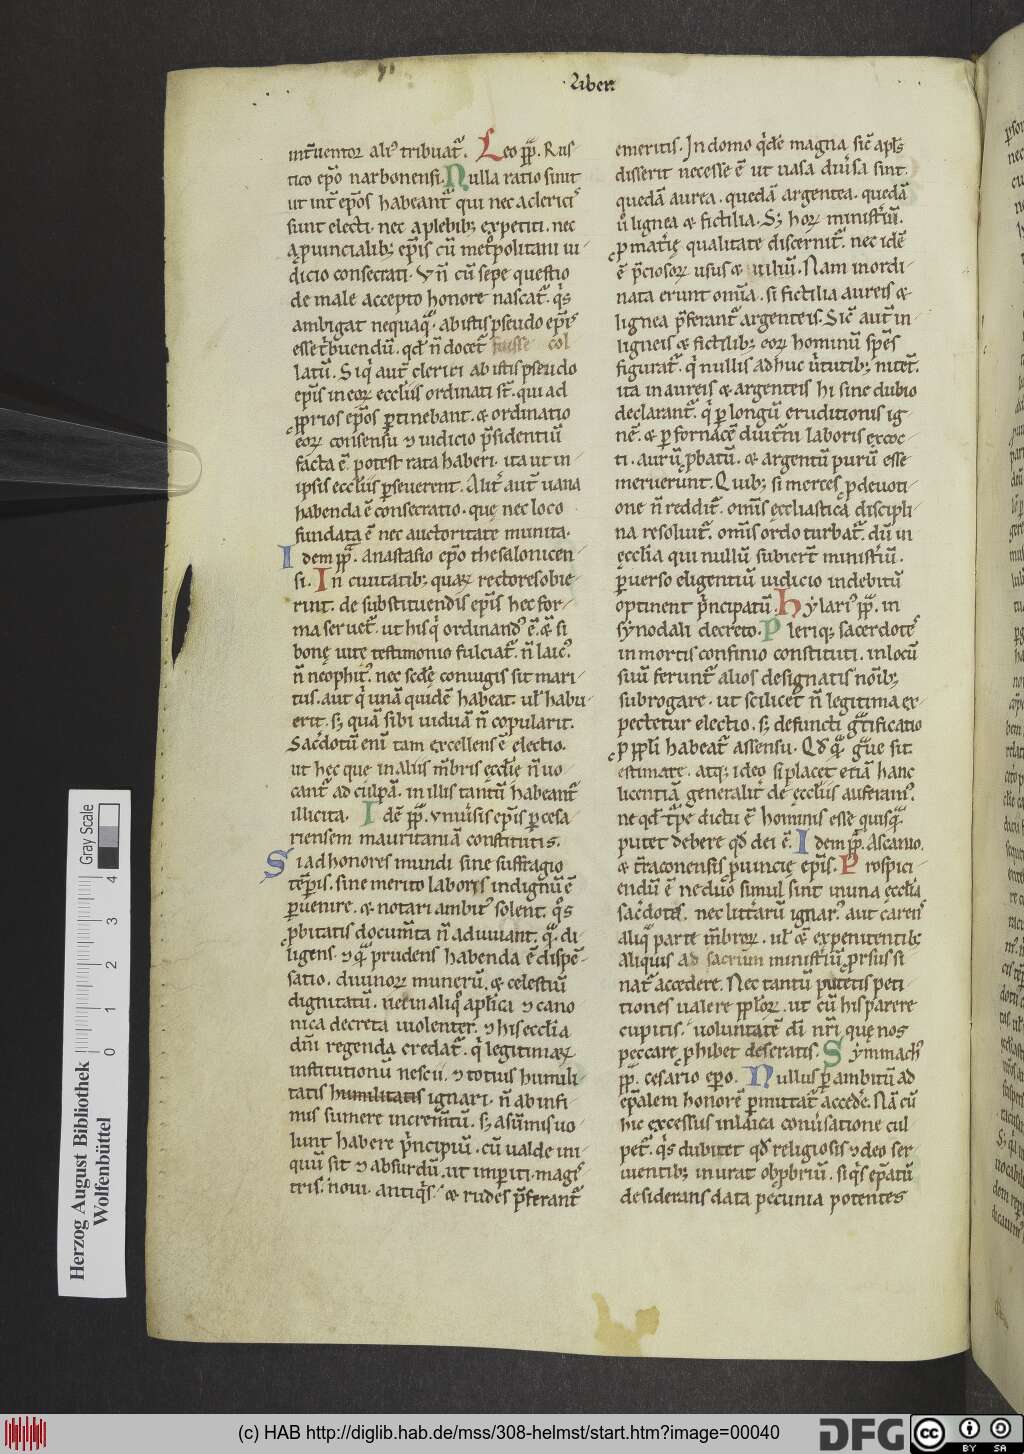 Liber
Leo pp̄. Rus
tico ep̄o narbonensi. Nulla ratio sinit
ut int̄ ep̄os habeant̄ qui nec a clerici᷒
sunt electi. nec a plebib; expetiti. nec
dicio consecrati. Vn̄ cū sepe questio
de male accepto honore nascat̄. q̇s
ambigat nequaq̄. ab istis pseudo ep̄is
latū. Siq̇ aut̄ clerici ab istis pseudo
ep̄is in eoꝝ eccl̄iis ordinati st̄. qui ad
ꝓprios ep̄os ꝑtinebant. & ordinatio
eoꝝ consensu ⁊ iudicio p̄sidentiū
facta ē. potest rata haberi. ita ut in
ipsis eccl̄iis ꝑseuerent. Alit̄ aut̄ uana
habenda ē consecratio. quę nec loco
fundata ē nec auctoritate munita.
Idem pp̄. anastasio ep̄o thesalonicen
si. In ciuitatib; quaꝝ rectores obie
rint. de substituendis ep̄is hec for
ma seruet̄. ut hisq̇ ordinand᷒ ē. & si
bonę uitę testimonio fulciat̄. n̄ laic᷒.
n̄ neophit᷒. nec scd̄e coniugis sit mari
tus. aut q̇ unā quidē habeat. ul̄ habu
erit. s; quā sibi uiduā n̄ copularit.
Sac̄dotū enī tam excellens ē electio.
ut hec que in aliis m̄bris eccl̄ie n̄ uo
cant̄ ad culpā. in illis tantū habeant̄
illicita. Idē pp̄. vniu̇sis ep̄is ꝑ cesa
riensem mauritaniā constitutis.
Si ad honores mundi sine suffragio
tēp̄is. sine merito laboris indignū ē
ꝑuenire. & notari ambit᷒ solent. q̇s
ꝓbitatis docum̄ta n̄ adiuuant. q̄. di
ligens. ⁊ q̄ prudens habenda ē dispē
satio. diuinoꝝ munerū. & celestiū
dignitatū. ne in aliq̊ ap̄lica ⁊ cano
nica decreta uiolent̄. ⁊ his eccl̄ia
dn̄i regenda credat̄. q̇ legitimaꝝ
institutionū nescii. ⁊ totius humili
tatis humilitatis ignari. n̄ ab infi
mis sumere increm̄tū. s; a sūmis uo
lunt habere ṗncipiū. cū ualde ini
quū sit ⁊ absurdū. ut imꝑiti. magi᷒
tris. noui. antiq̇s. & rudes p̄ferant̄
emeritis. In domo q̇dē magna sic̄ ap̄ls
disserit necesse ē ut uasa diu̇sa sint.
quedā aurea. quedā argentea. quedā
u̇ lignea & fictilia. S; hoꝝ minist̄iū.
ꝓ mat̄ię qualitate discernit̄. nec idē
ē p̄ciosoꝝ usus & uiliū. Nam inordi
nata erunt om̄ia. si fictilia aureis &
lignea p̄ferant̄ argenteis. Sic̄ aut̄ in
ligneis & fictilib; eoꝝ hominū sp̄es
figurat̄. q̇ nullis adhuc u̇tutib; nitet̄.
ita in aureis & argenteis hi sine dubio
declarant̄. q̇ ꝑ longū eruditionis ig
nē. & ꝑ fornacē diut̄ni laboris excoc
ti. aurū ꝓbatū. & argentū purū esse
meruerunt. Quib; si merces ꝓ deuoti
one n̄ reddit̄. om̄is eccl̄iastica discipli
na resoluit̄. om̄is ordo turbat̄. dū in
eccl̄ia qui nullū subiert̄ minist̄iū.
ꝑuerso eligentiū iudicio indebitū
optinent ṗncipatū. Hylari᷒ pp̄. in
synodali decreto. Pleriq; sacerdote᷒
in mortis confinio constituti. in locū
suū ferunt̄ alios designatis noīb;
subrogare. ut scilicet n̄ legitima ex
pectetur electio. s; defuncti gr̄tificatio
ꝓ ppl̄i habeat̄ assensu. Qd̄ q̄. gr̄ue sit
estimate. atq; ideo si placet etiā hanc
licentiā generalit̄ de eccl̄iis auferam᷒.
ne qd̄ t̄pe dictu ē hominis esse quisq̄.
putet debere qd̄ dei ē. Idem pp̄. Ascanio.
& t̄raconensis ꝓuincię ep̄is. Prospici
endū ē ne duo simul sint in una eccl̄ia
sac̄dotes. nec litt̄arū ignar᷒. aut carens
aliq̄ parte m̄broꝝ. ul̄ & ex penitentib;
aliquis ad sacrum minist̄iū ꝓrsus si
nat̄ accedere. Nec tantū putetis peti
tiones ualere ppl̄oꝝ. ut cū his parere
cupitis. uoluntatē dī nr̄i quę nos
peccare ꝓhibet deseratis. Symmach᷒
pp̄. cesario ep̄o. Nullus ꝑ ambitū ad
ep̄alem honorē ꝑmittat̄ accede᷒. Nā cū
hic excessus in laica conu̇satione cul
pet̄. q̇s dubitet qd̄ religiosis ⁊ deo ser
uientib; inurat obꝓbriū. siq̇s ep̄atū
desiderans data pecunia potentes
Gray Scale
0 1 2 3 4
Herzog August Bibliothek
Wolfenbüttel
(c) HAB http://diglib.hab.de/mss/308-helmst/start.htm?image=00040
DFG
cc BY SA